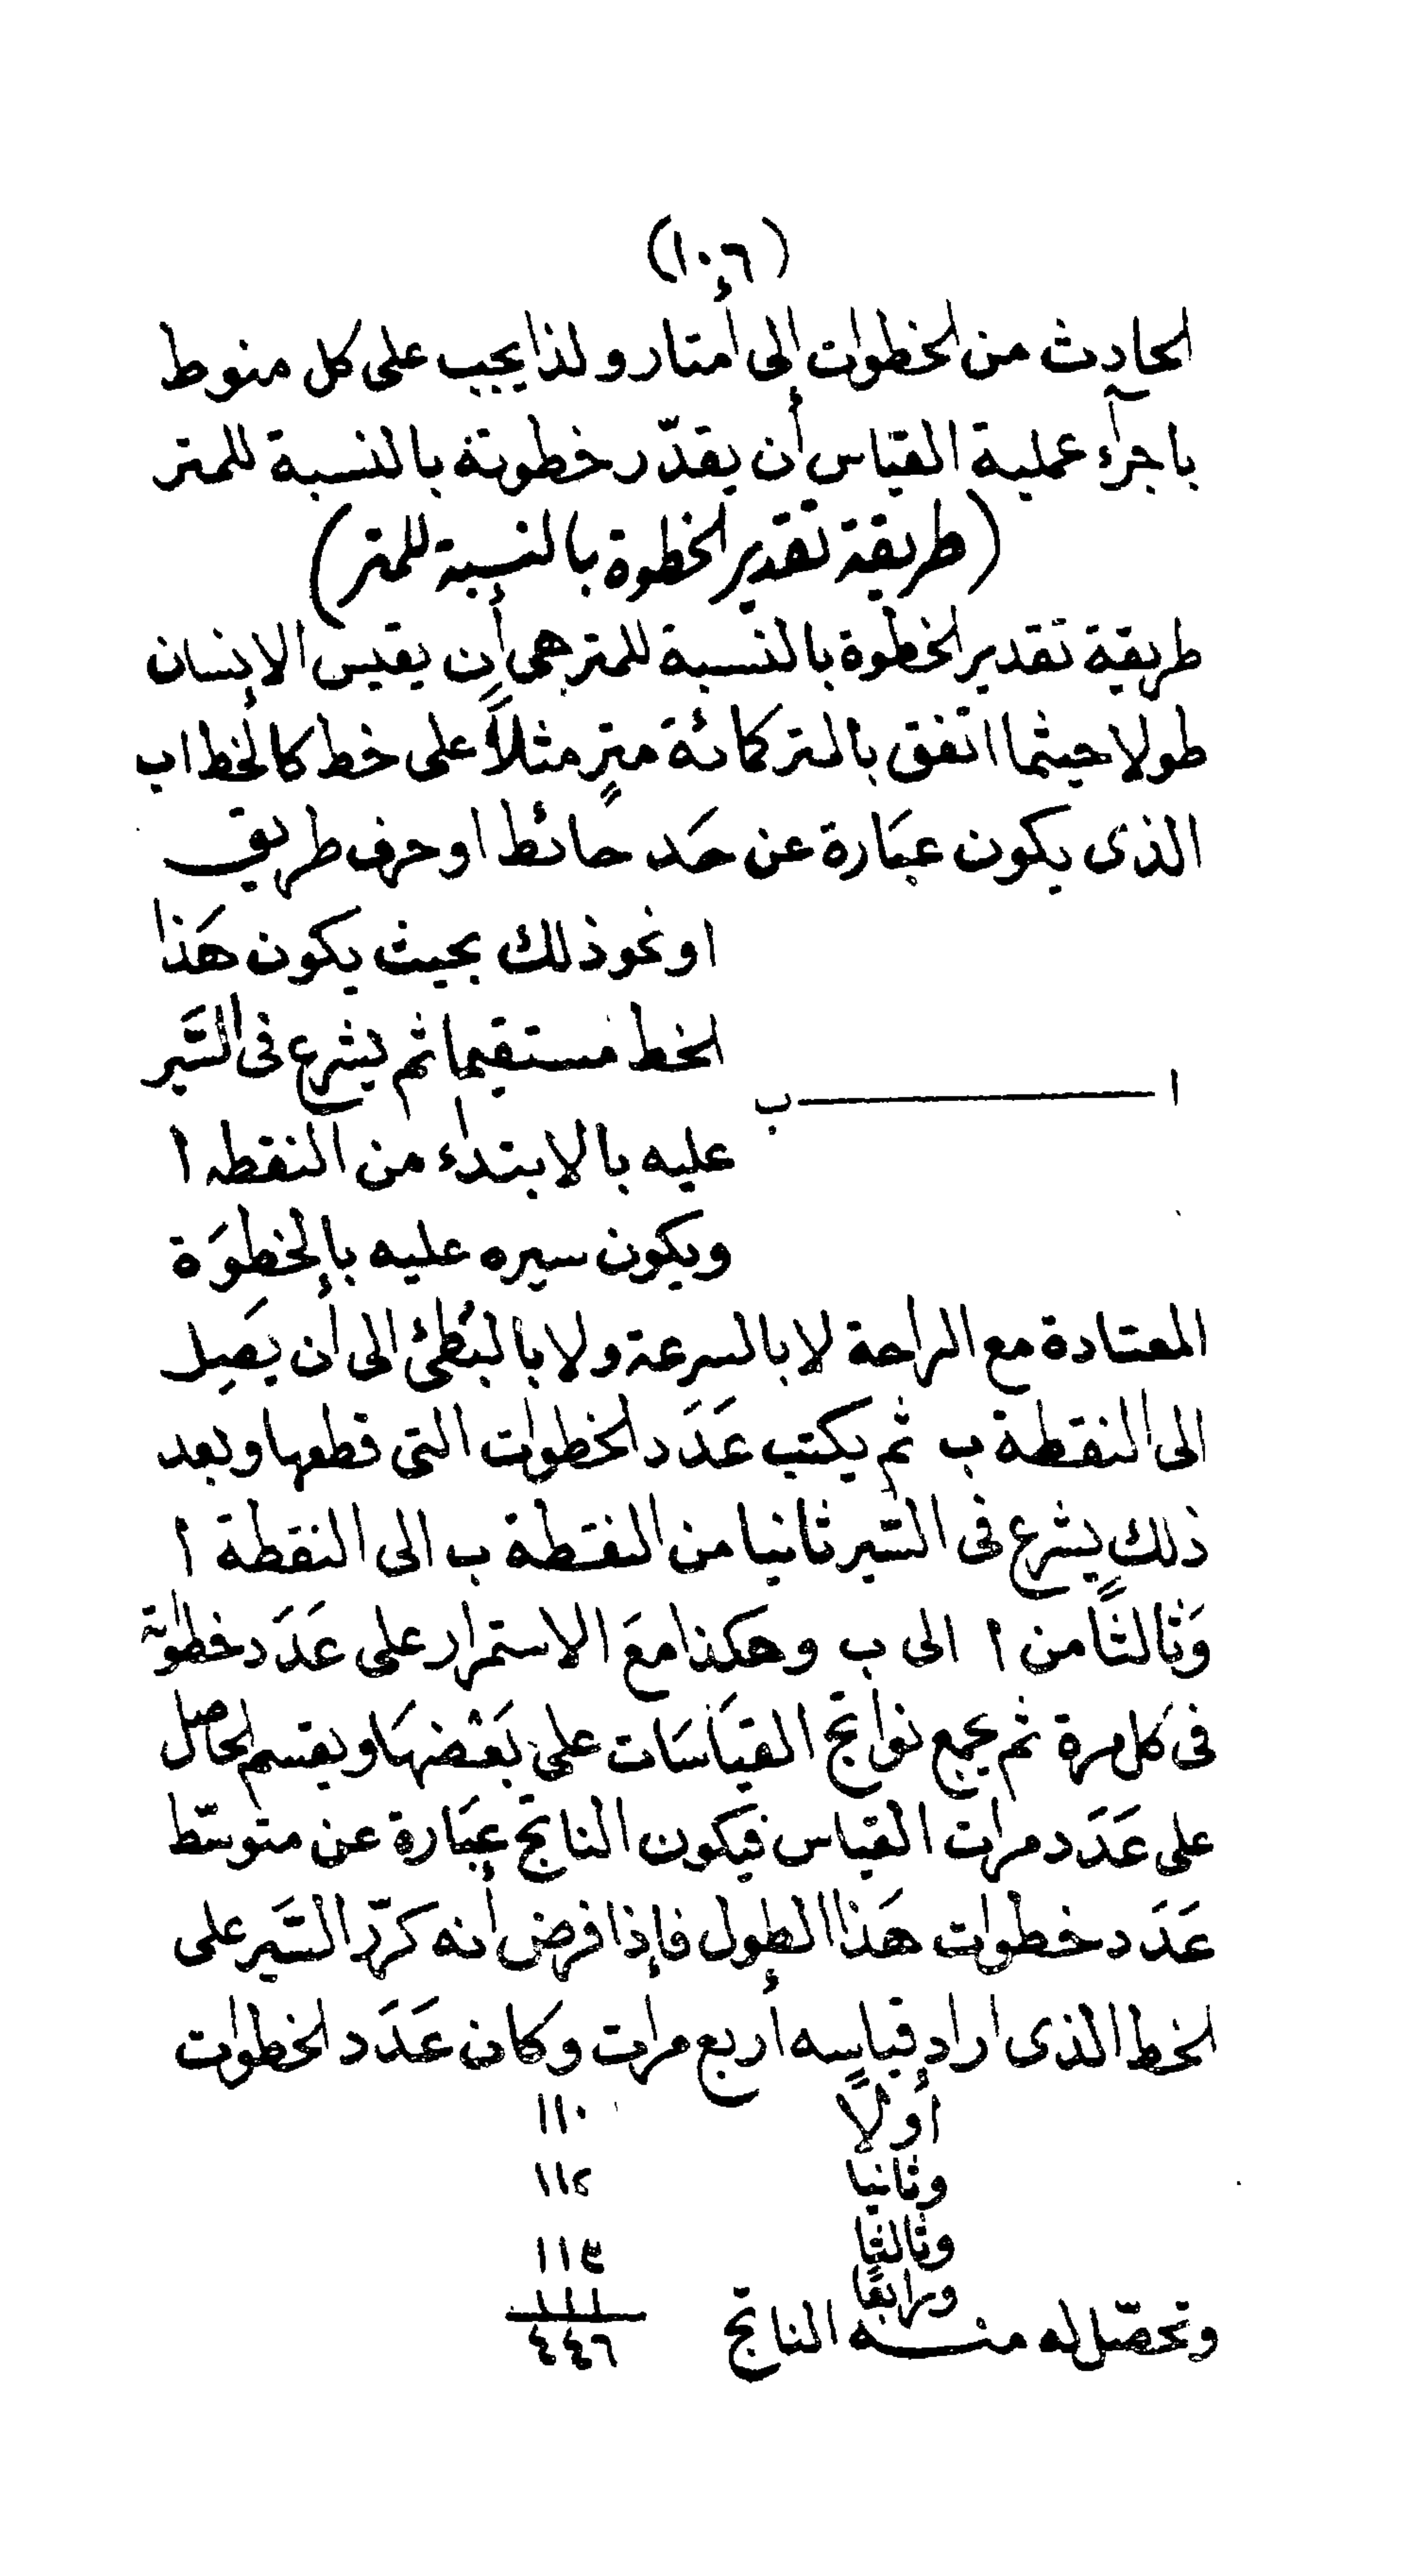 (١٠٦)
الحادث من الخطوات إلى أمتار ولذا يجب على كل منوط
باجرآء عملية القياس أن يقدّر خطوته بالنسبة للمتر
(طريقة تقدير الخطوة بالنسبة للمتر)
طريقة تقدير الخطوة بالنسبة للمتر هى أن يقيس الانسان
طولا حيثما اتفق بالمتر كمائة مترٍ مثلاً على خط كالخط اب
الذى يكون عبَارة عن حَد حائط او حرف طريق
او نحو ذلك بحيث يكون هَذا
الخط مستقيما ثم يشرع فى السَّير
ا ب
عليه بالابتداء من النقطه ا
ويكون سيره عليه بالخطوَة
المعتادة مع الراحة لا بالسرعة ولا بالبُطئ الى أن يَصِل
الى النقطة ب ثم يكتب عَدَد الخطوات التى قطعها وبعد
ذلك يشرع فى السّير ثانيا من النقطة ب الى النقطة ا
وَثالثًا من ا الى ب وهكذا معَ الاستمرار على عَدَد خطواته
فى كل مرة ثم يجمع نواتج القيَاسَات على بَعْضهَا ويقسم الحاصل
على عَدَد مرات القياس فيكون الناتج عبَارة عن متوسّط
عَدَد خطوات هَذا الطول فإذا فرض أنه كرّر السَّير على
الخط الذى اراد قياسه أربع مرات وكان عَدَد الخطوات
أولاً ١١٠
وثانيا ١١٢
وثالثا ١١٣
ورابعًا ١١١
وتحصّل له منه الناتج ٤٤٦